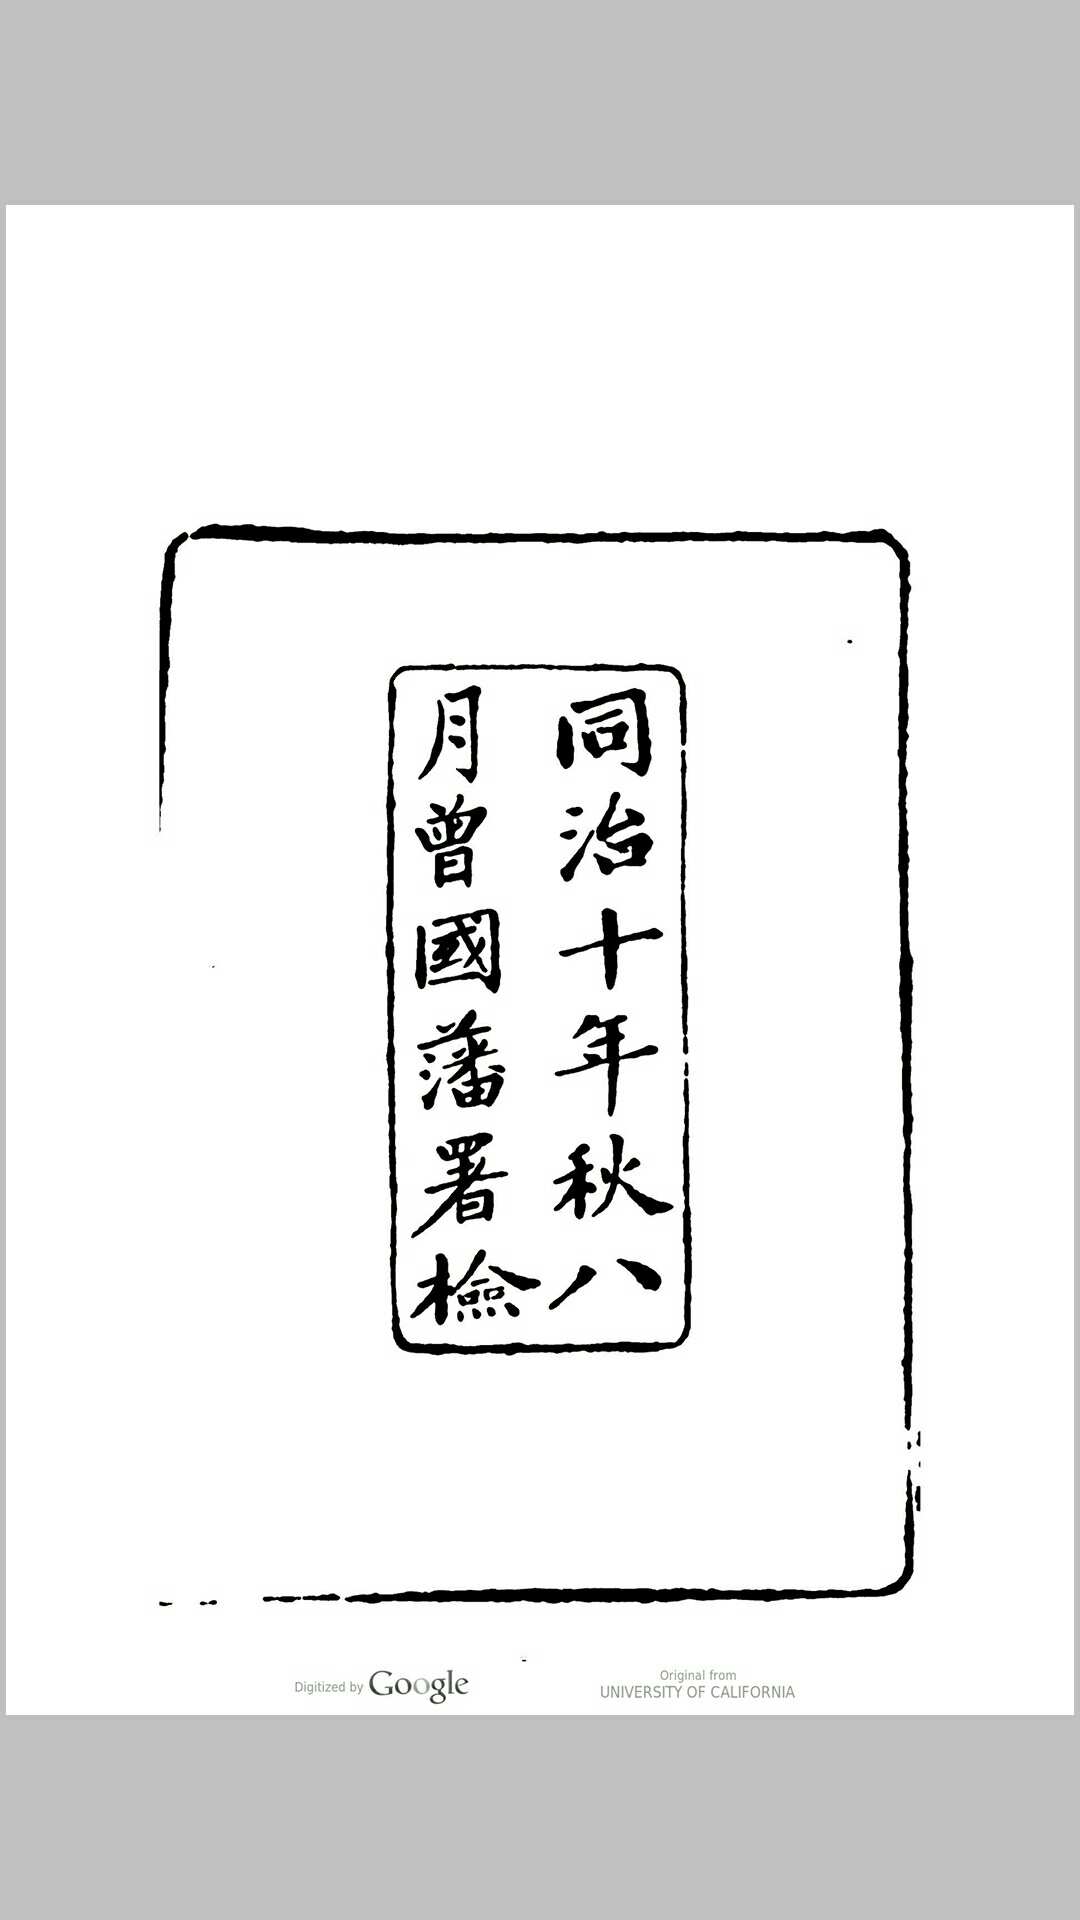 同治十年秋八
月曾國藩署檢
Digitized by Google
Original from
UNIVERSITY OF CALIFORNIA